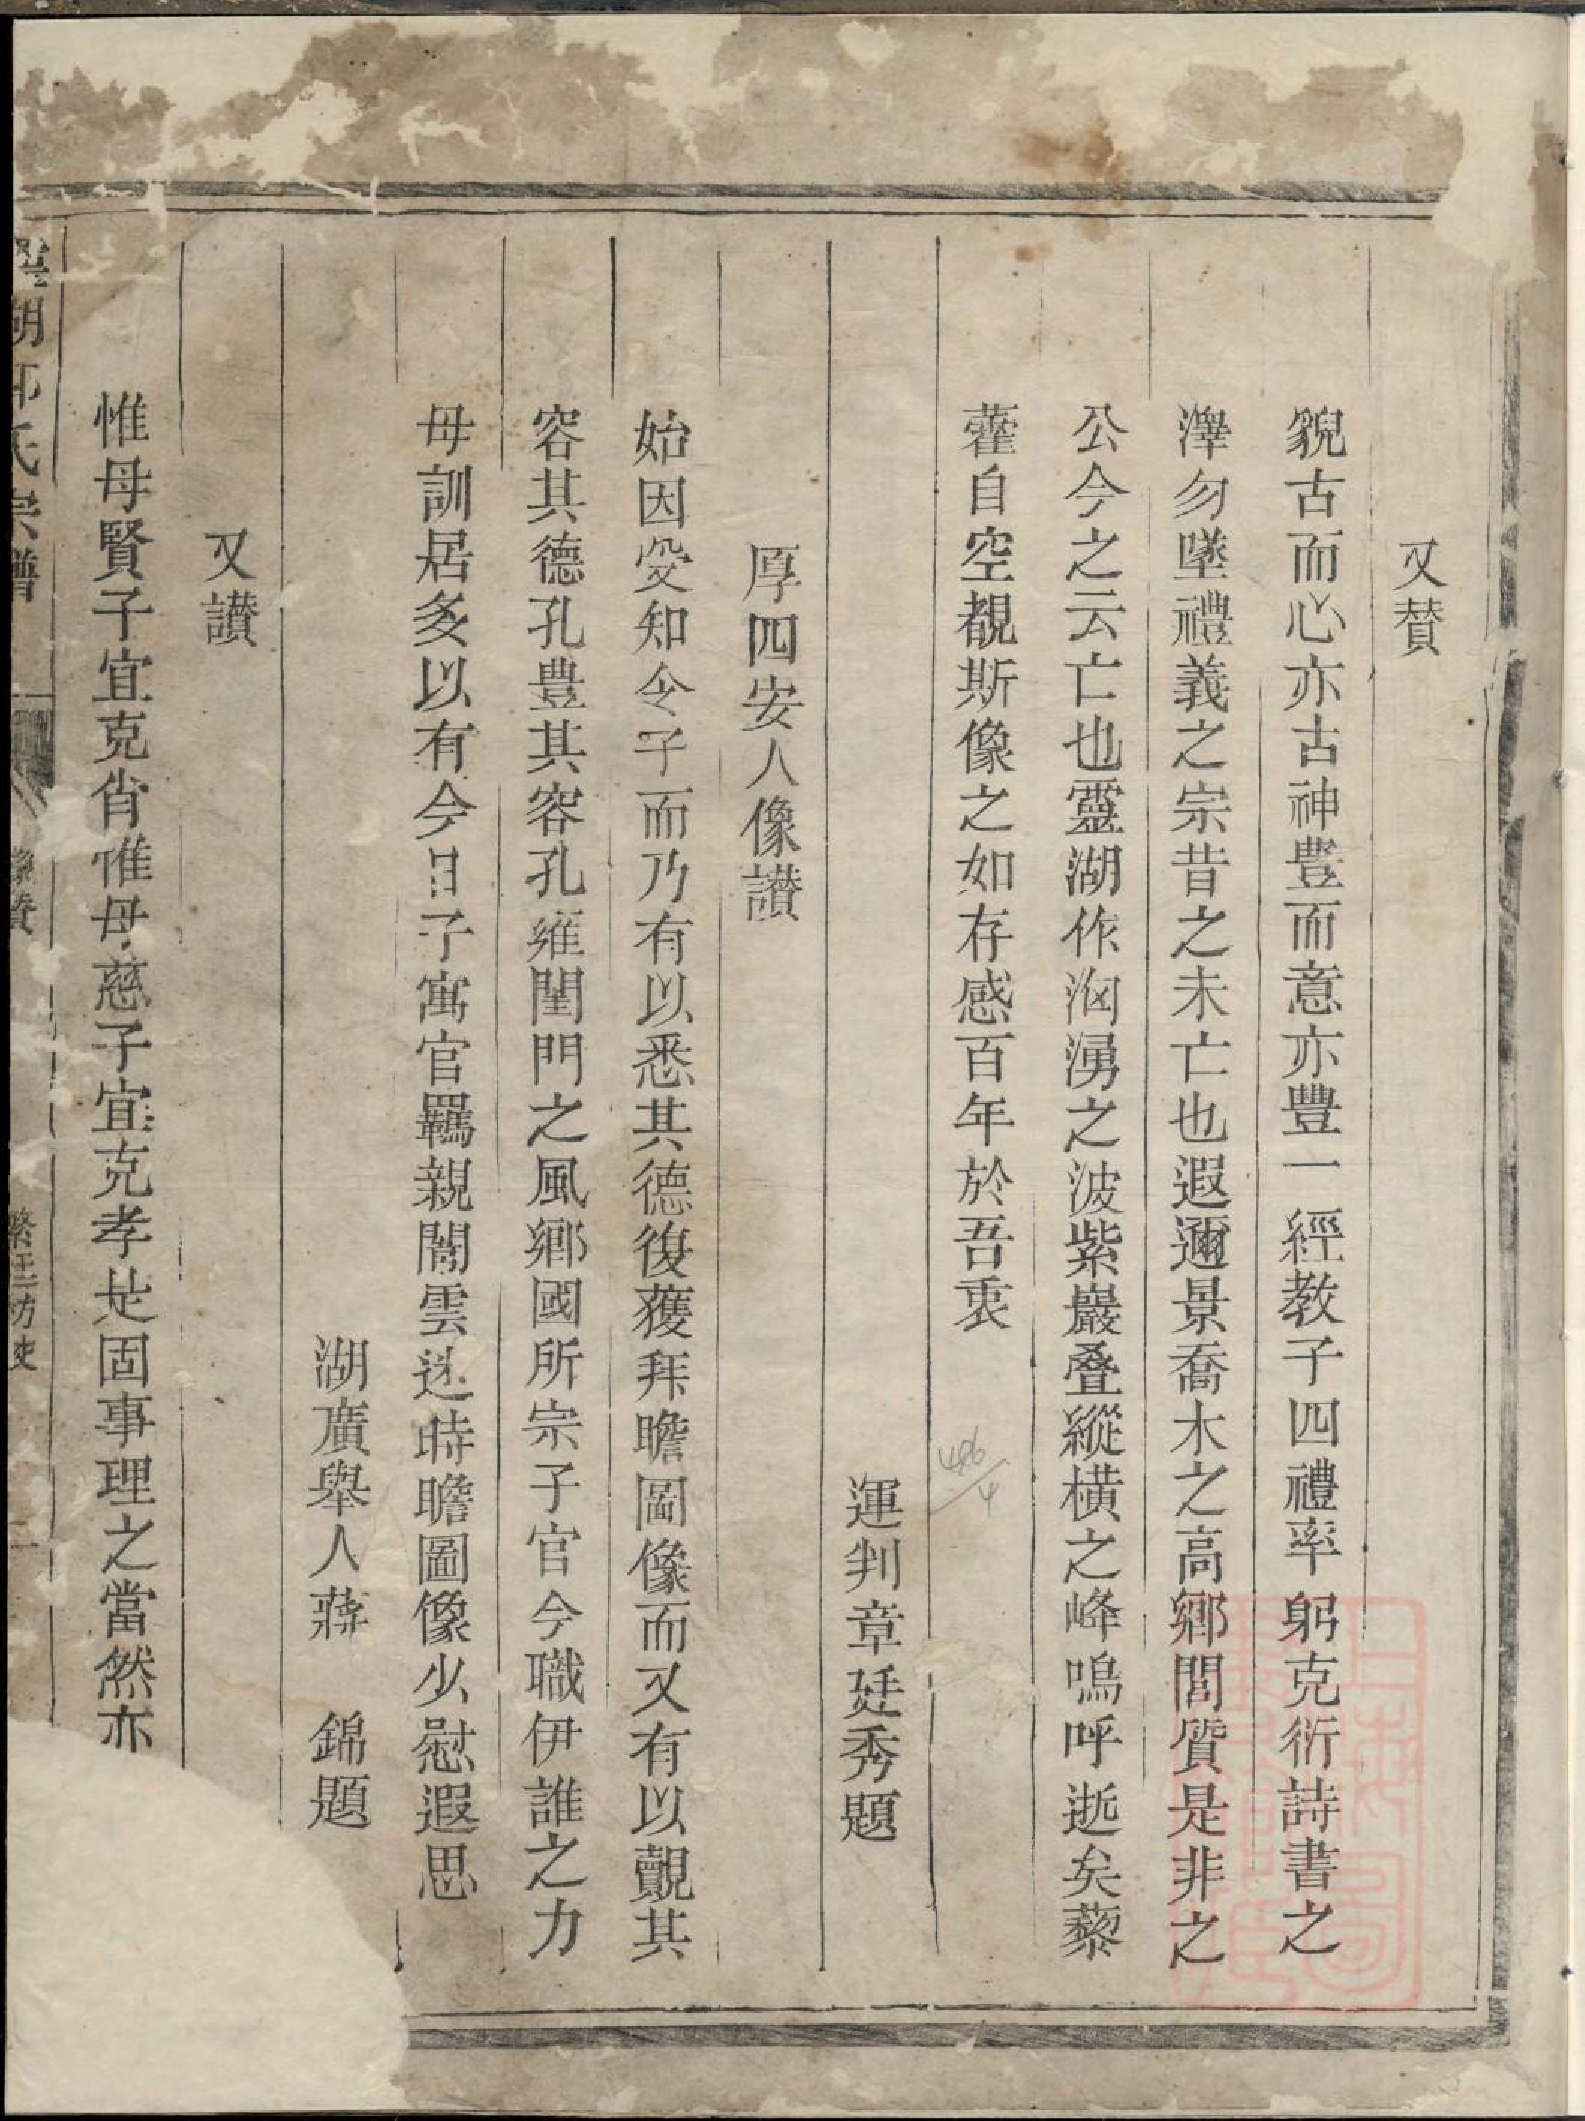 又賛
貌古而心亦古神豊而意亦豊一經教子四禮率躬克衍詩書之
澤勿墜禮義之宗昔之未亡也遐邇景喬木之高鄉閭質是非之
公今之云亡也靈湖作洶湧之波紫巖叠縱橫之峰嗚呼逝矣藜
藿自空覩斯像之如存感百年於吾衷
運判章廷秀題
厚四安人像讃
始因受知令子而乃有以悉其德復獲拜瞻圖像而又有以覿其
容其德孔豊其容孔雍閨門之風鄉國所宗子官今職伊誰之力
母訓居多以有今日子寓官羈親闈雲迯時瞻圖像少慰遐思
湖廣舉人蔣 錦題
又讃
惟母賢子宜克肖惟母慈子宜克孝是固事理之當然亦
湖 氏宗譜
像賛
426/4